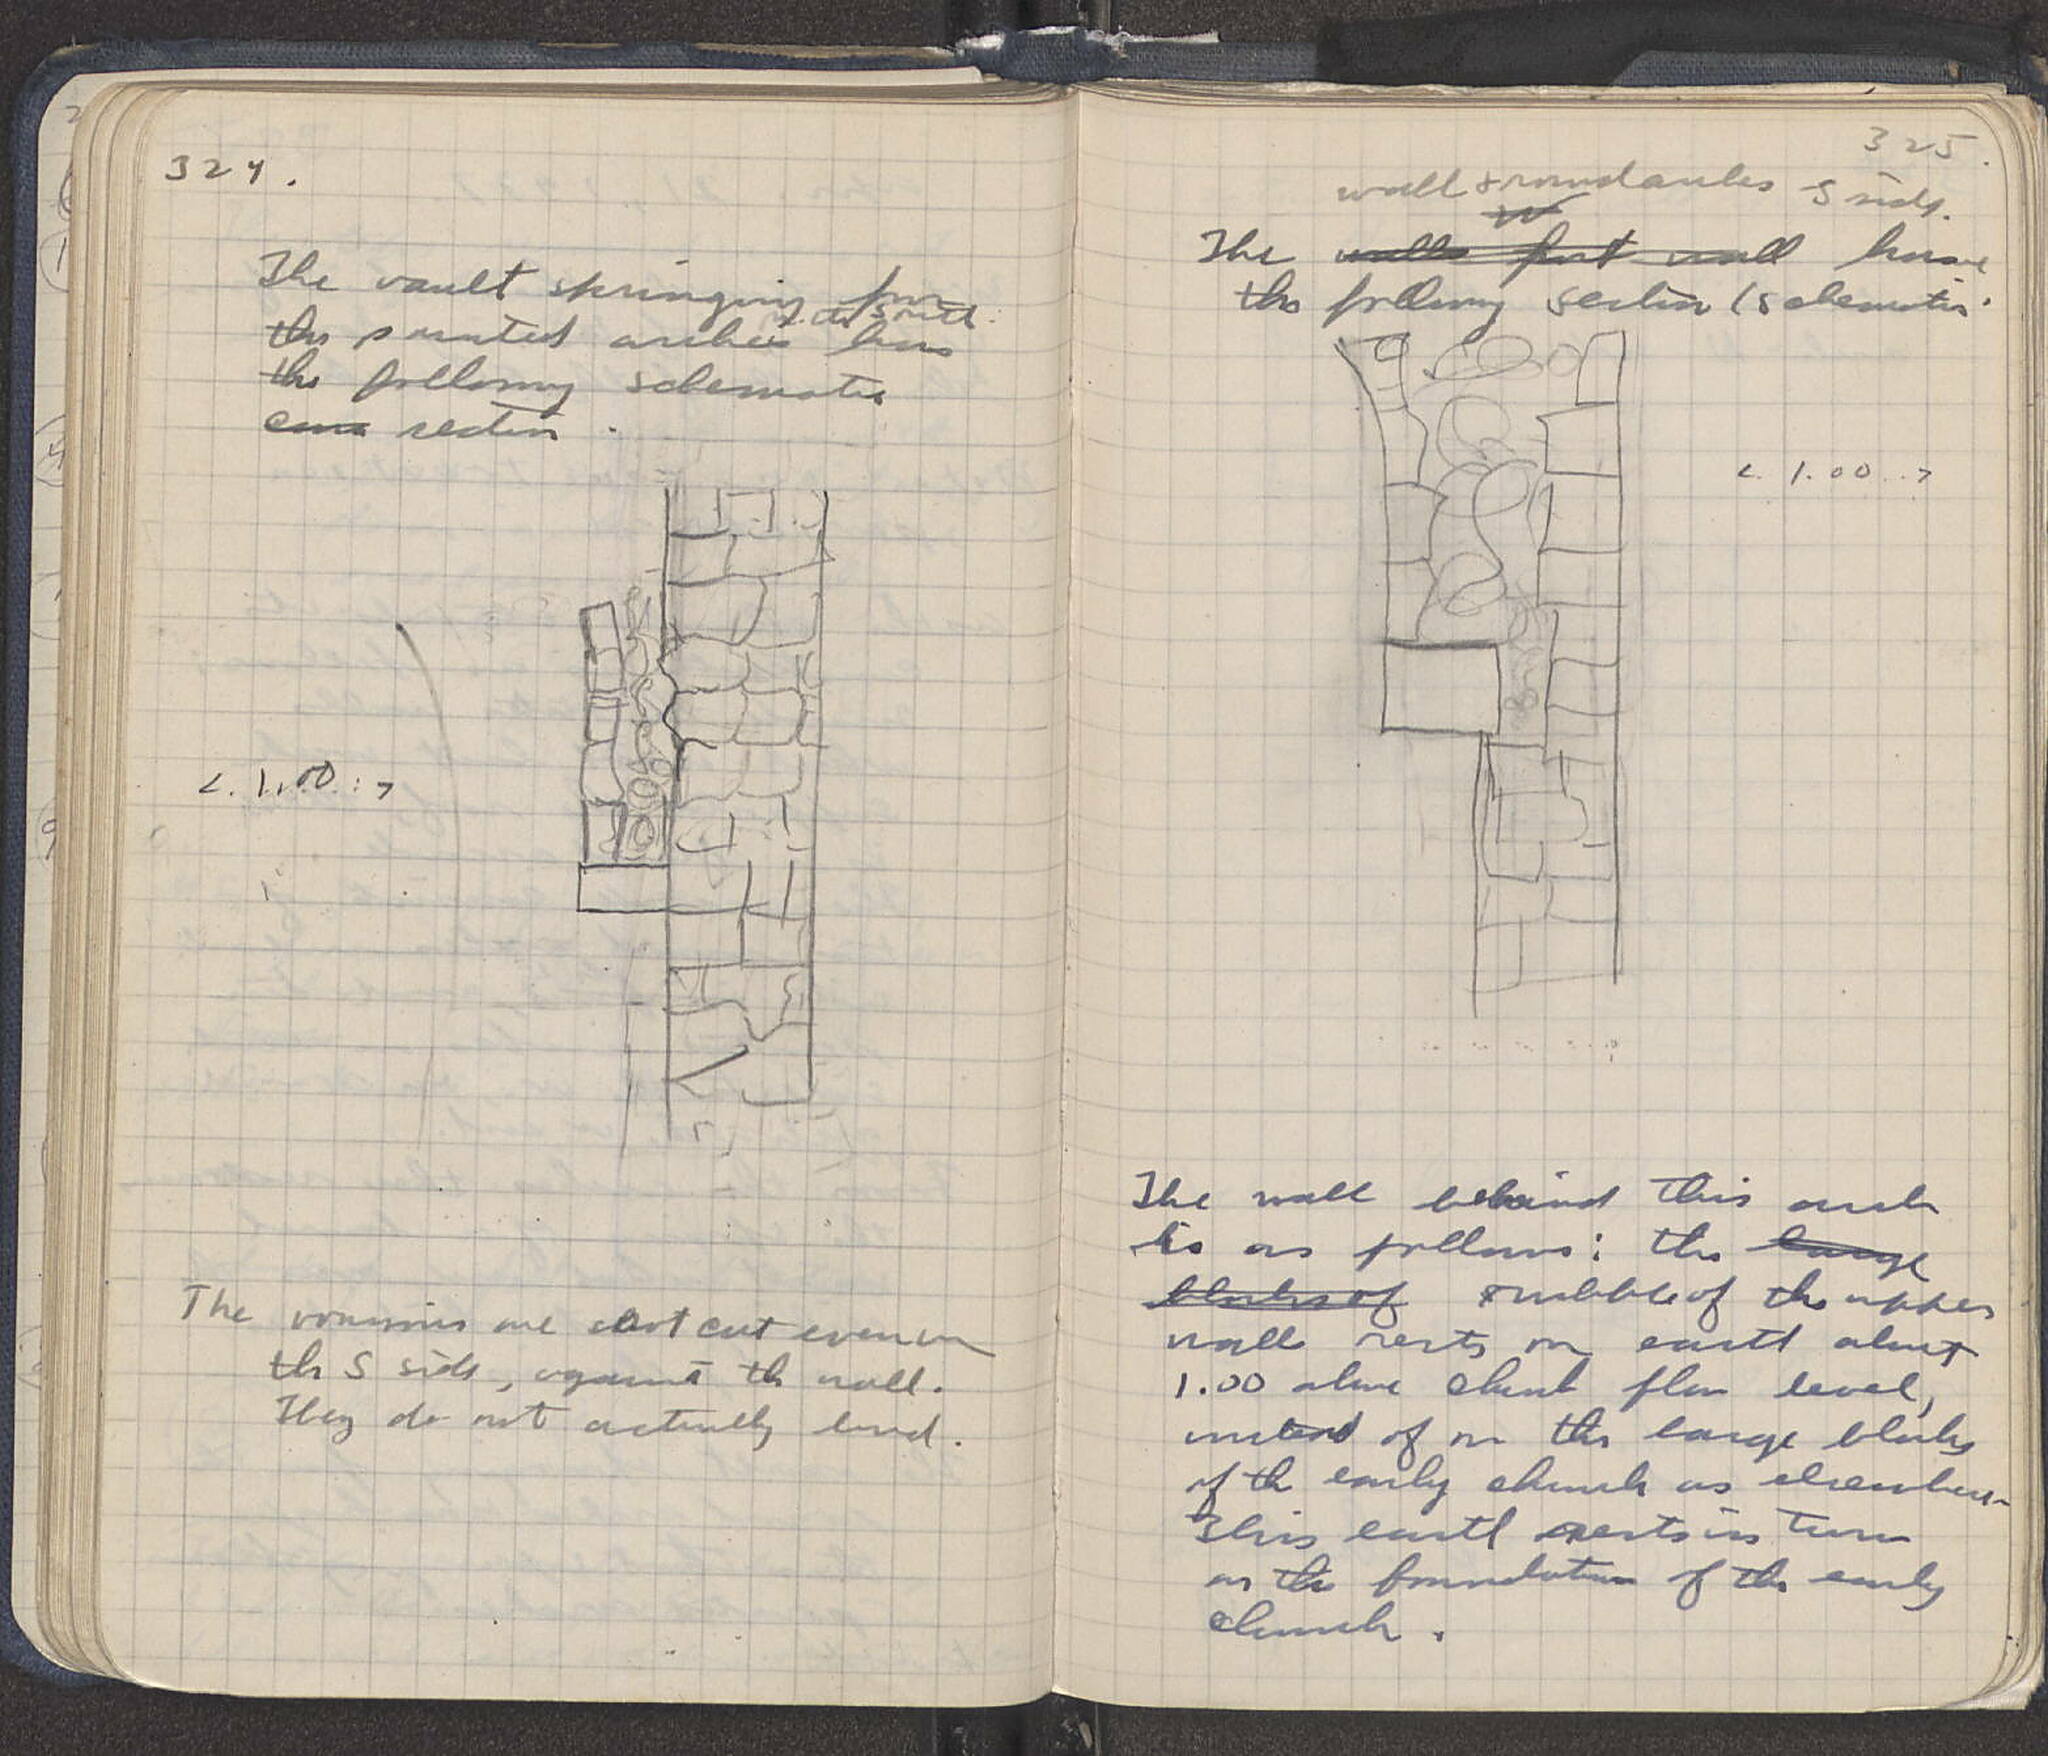 324.
The vault springing from
the pointed arches has
the following schematic
section.
<. 1.00 . >
The voussoirs are not cut even on
the S side, against the wall.
They do not actually bond.
325.
wall & round arches S side.
The walls wall have
the following section (schematic
<. 1.00 .. >
The wall behind this arch
is as follows: the large
blocks of rubble of the upper
wall rests on earth about
1.00 above church floor level,
instead of on the large blocks
of the early church as elsewhere.
This earth rests in turn
on the foundation of the early
church.